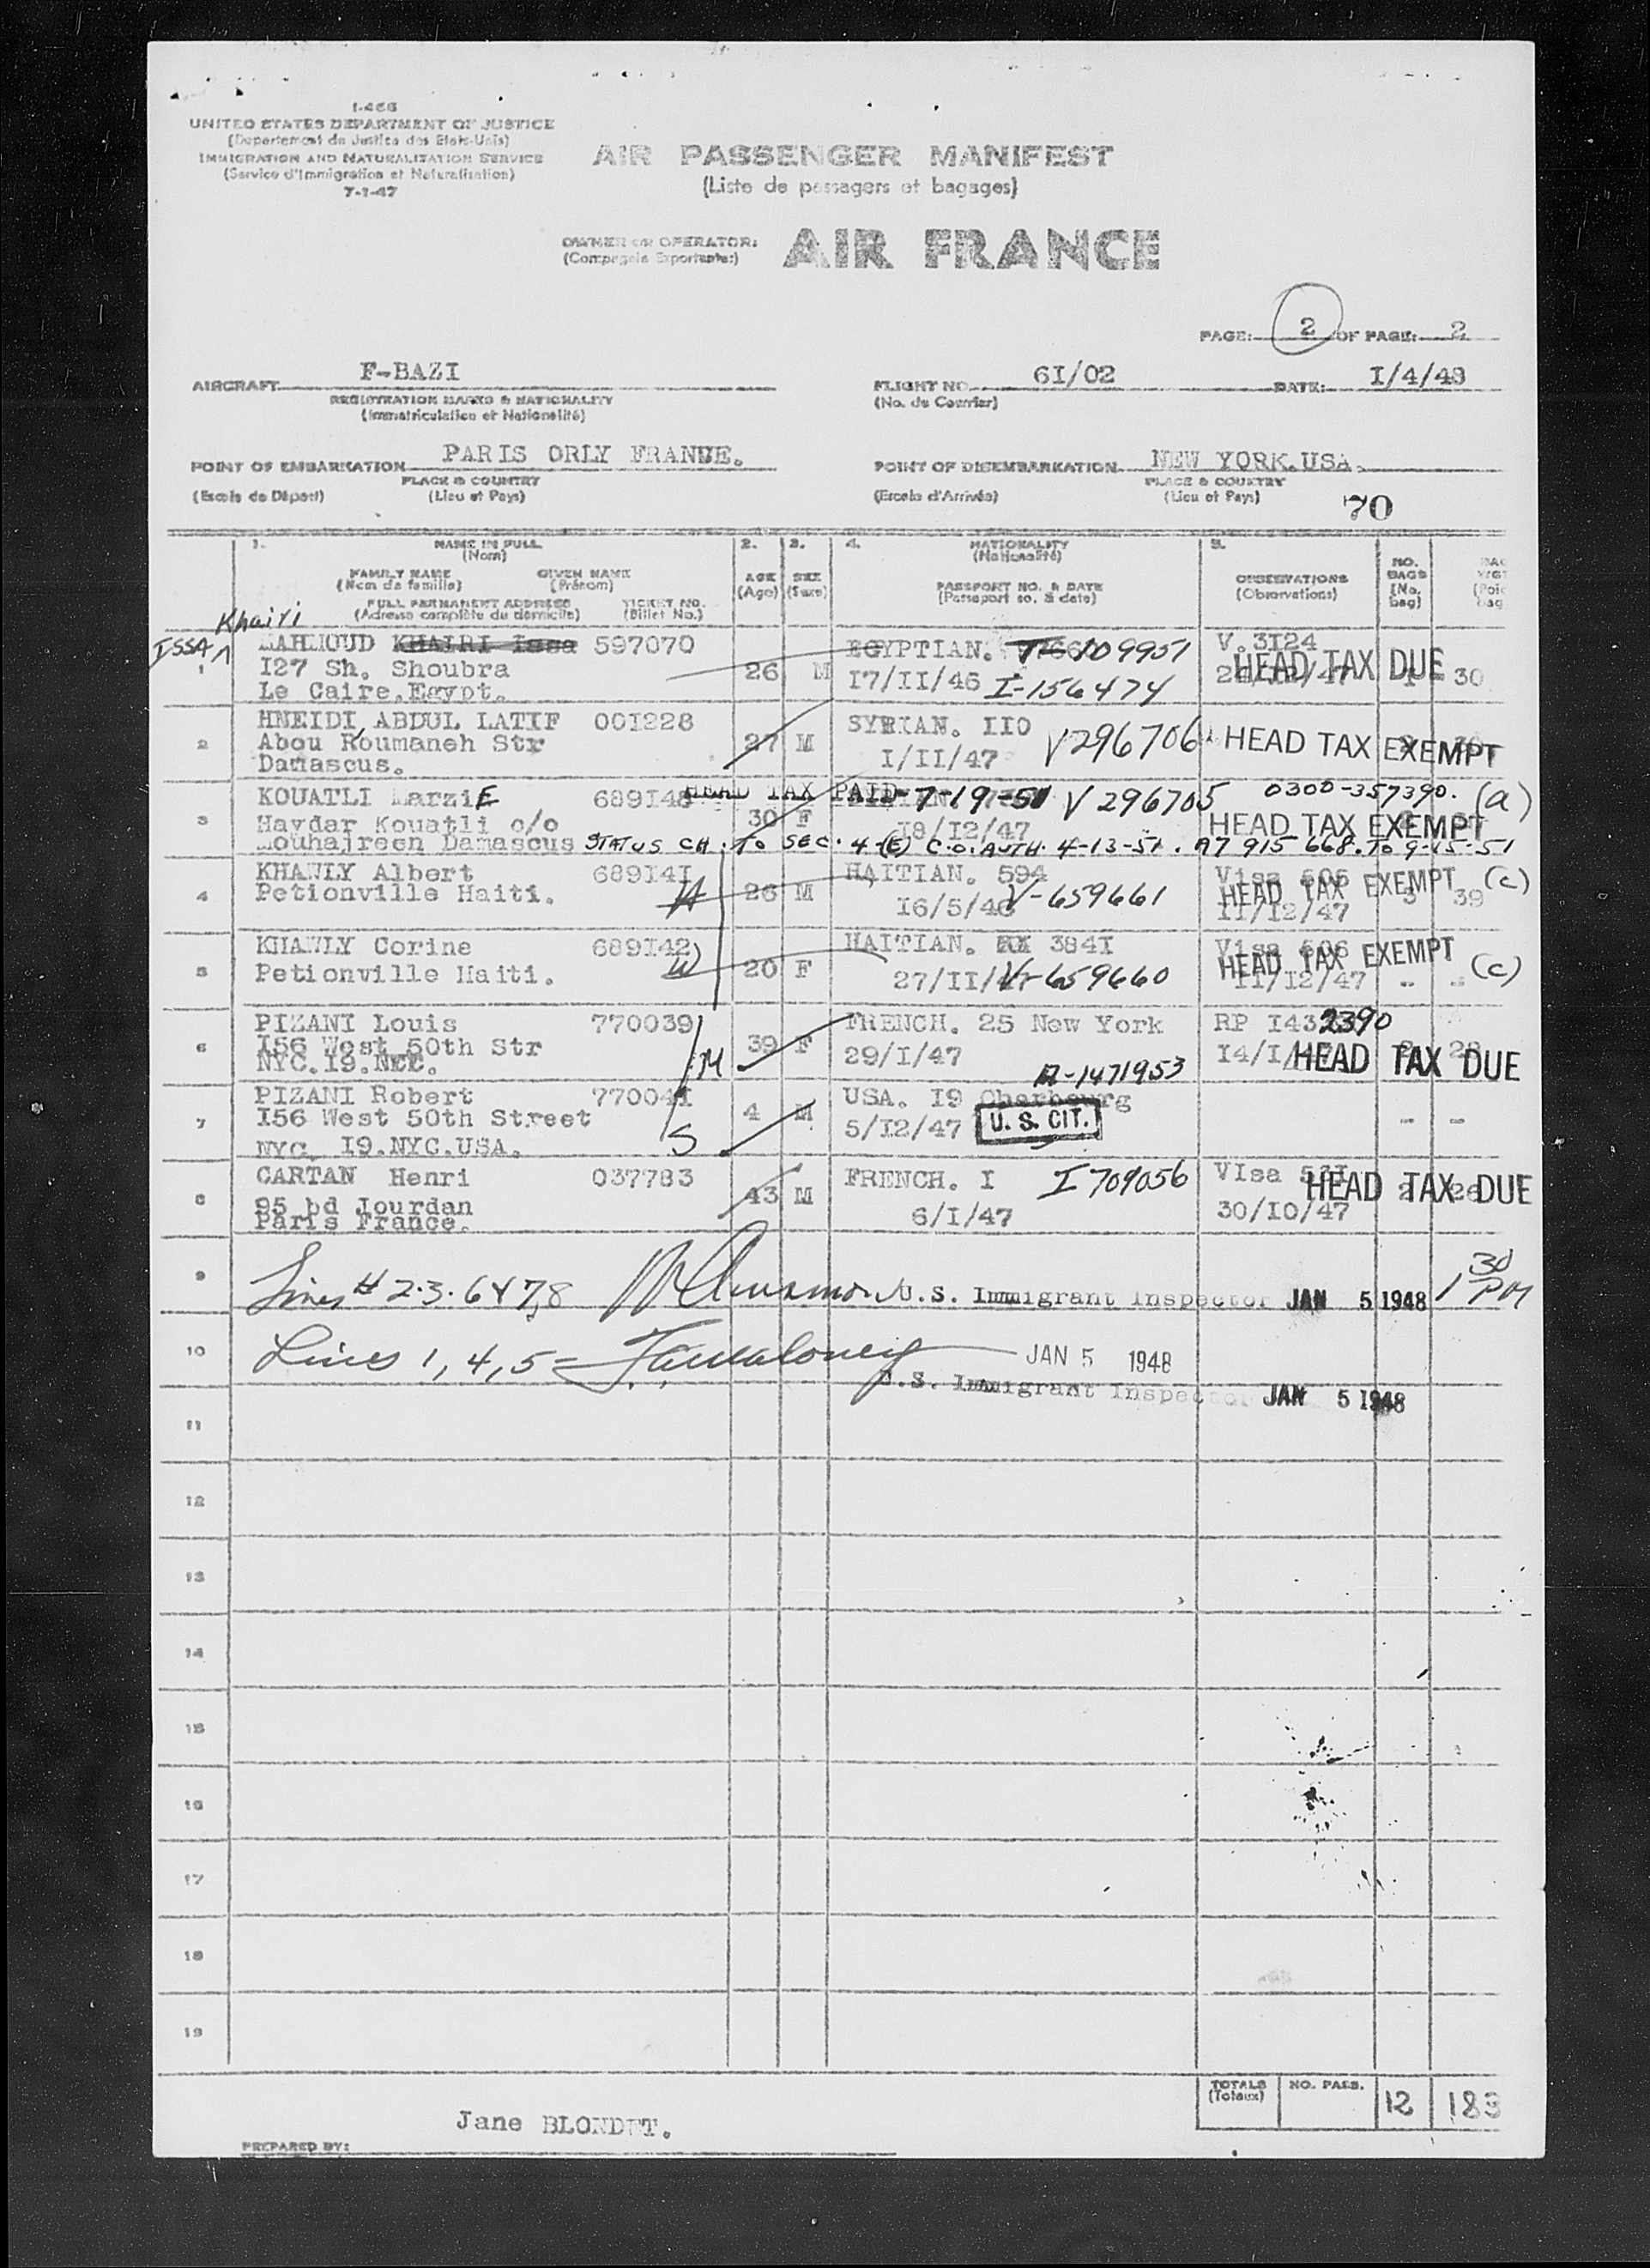 I-466
UNITED STATES DEPARTMENT OF JUSTICE
(Departement de Justice des Etats-Unis)
IMMIGRATION AND NATURALIZATION SERVICE
(Service d'Immigration et Naturalisation)
7-1-47
AIR PASSENGER MANIFEST
(Liste de passagers et bagages)
OWNER OR OPERATOR: AIR FRANCE
(Compagnie Exportante:)
PAGE: 2 OF PAGE: 2
AIRCRAFT F-BAZI
REGISTRATION MARKS & NATIONALITY
(Immatriculation et Nationalité)
FLIGHT NO. 6I/02 DATE: I/4/48
(No. du Courrier)
POINT OF EMBARKATION PARIS ORLY FRANCE.
PLACE & COUNTRY
(Escale de Départ) (Lieu et Pays)
POINT OF DISEMBARKATION NEW YORK.USA.
PLACE & COUNTRY
(Escale d'Arrivée) (Lieu et Pays)
70
1. NAME IN FULL 2. 3. 4. NATIONALITY 5.
(Nom) (Nationalité)
FAMILY NAME GIVEN NAME AGE SEX PASSPORT NO. & DATE OBSERVATIONS NO. BAGS
(Nom de famille) (Prénom) (Age) (Sexe) (Passeport no. & date) (Observations) (No. bag)
FULL PERMANENT ADDRESS TICKET NO.
(Adresse complète du domicile) (Billet No.)
Khairi
ISSA
1 MAHMOUD KHAIRI Issa 597070 26 M EGYPTIAN. 109951 V.3I24
I27 Sh. Shoubra I7/II/46 I-156474 HEAD TAX DUE 1 30
Le Caire.Egypt.
2 HNEIDI ABDUL LATIF 001228 27 M SYRIAN. IIO V296706 HEAD TAX EXEMPT
Abou Roumaneh Str I/II/47
Damascus.
3 KOUATLI MarziE 689148 HEAD TAX PAID-7-19-51 V 296705 0300-357390. (a)
Haydar Kouatli c/o 30 F I8/I2/47 HEAD TAX EXEMPT
Mouhajreen Damascus STATUS CH. TO SEC. 4-(E) C.O. AUTH. 4-13-51. A7 915 668. TO 9-15-51
4 KHAWLY Albert 689I4I 26 M HAITIAN. 594 Visa 605 HEAD TAX EXEMPT (c)
Petionville Haiti. I6/5/46 V-659661 II/I2/47 3 39
5 KHAWLY Corine 689I42 20 F HAITIAN. 384I Visa 606 HEAD TAX EXEMPT (c)
Petionville Haiti. 27/II/ V-659660 II/I2/47 - -
6 PIZANI Louis 770039 39 F FRENCH. 25 New York RP I43 2390
I56 West 50th Str M 29/I/47 I4/I/ HEAD TAX DUE
NYC.I9.
A-1471953
7 PIZANI Robert 77004I 4 M USA. I9 Cherbourg
I56 West 50th Street S 5/I2/47 U. S. CIT. - -
NYC. I9.NYC.USA.
8 CARTAN Henri 037783 43 M FRENCH. I I 709056 VIsa HEAD TAX DUE
95 bd Jourdan 6/I/47 30/IO/47
Paris France.
9 Lines # 2.3.6 & 7,8 U.S. Immigrant Inspector JAN 5 1948 1 30 PM
10 Lines 1, 4, 5 = JAN 5 1948
U.S. Immigrant Inspector JAN 5 1948
11
12
13
14
15
16
17
18
19
TOTALS NO. PASS. 12 183
(Totaux)
Jane BLONDET.
PREPARED BY: